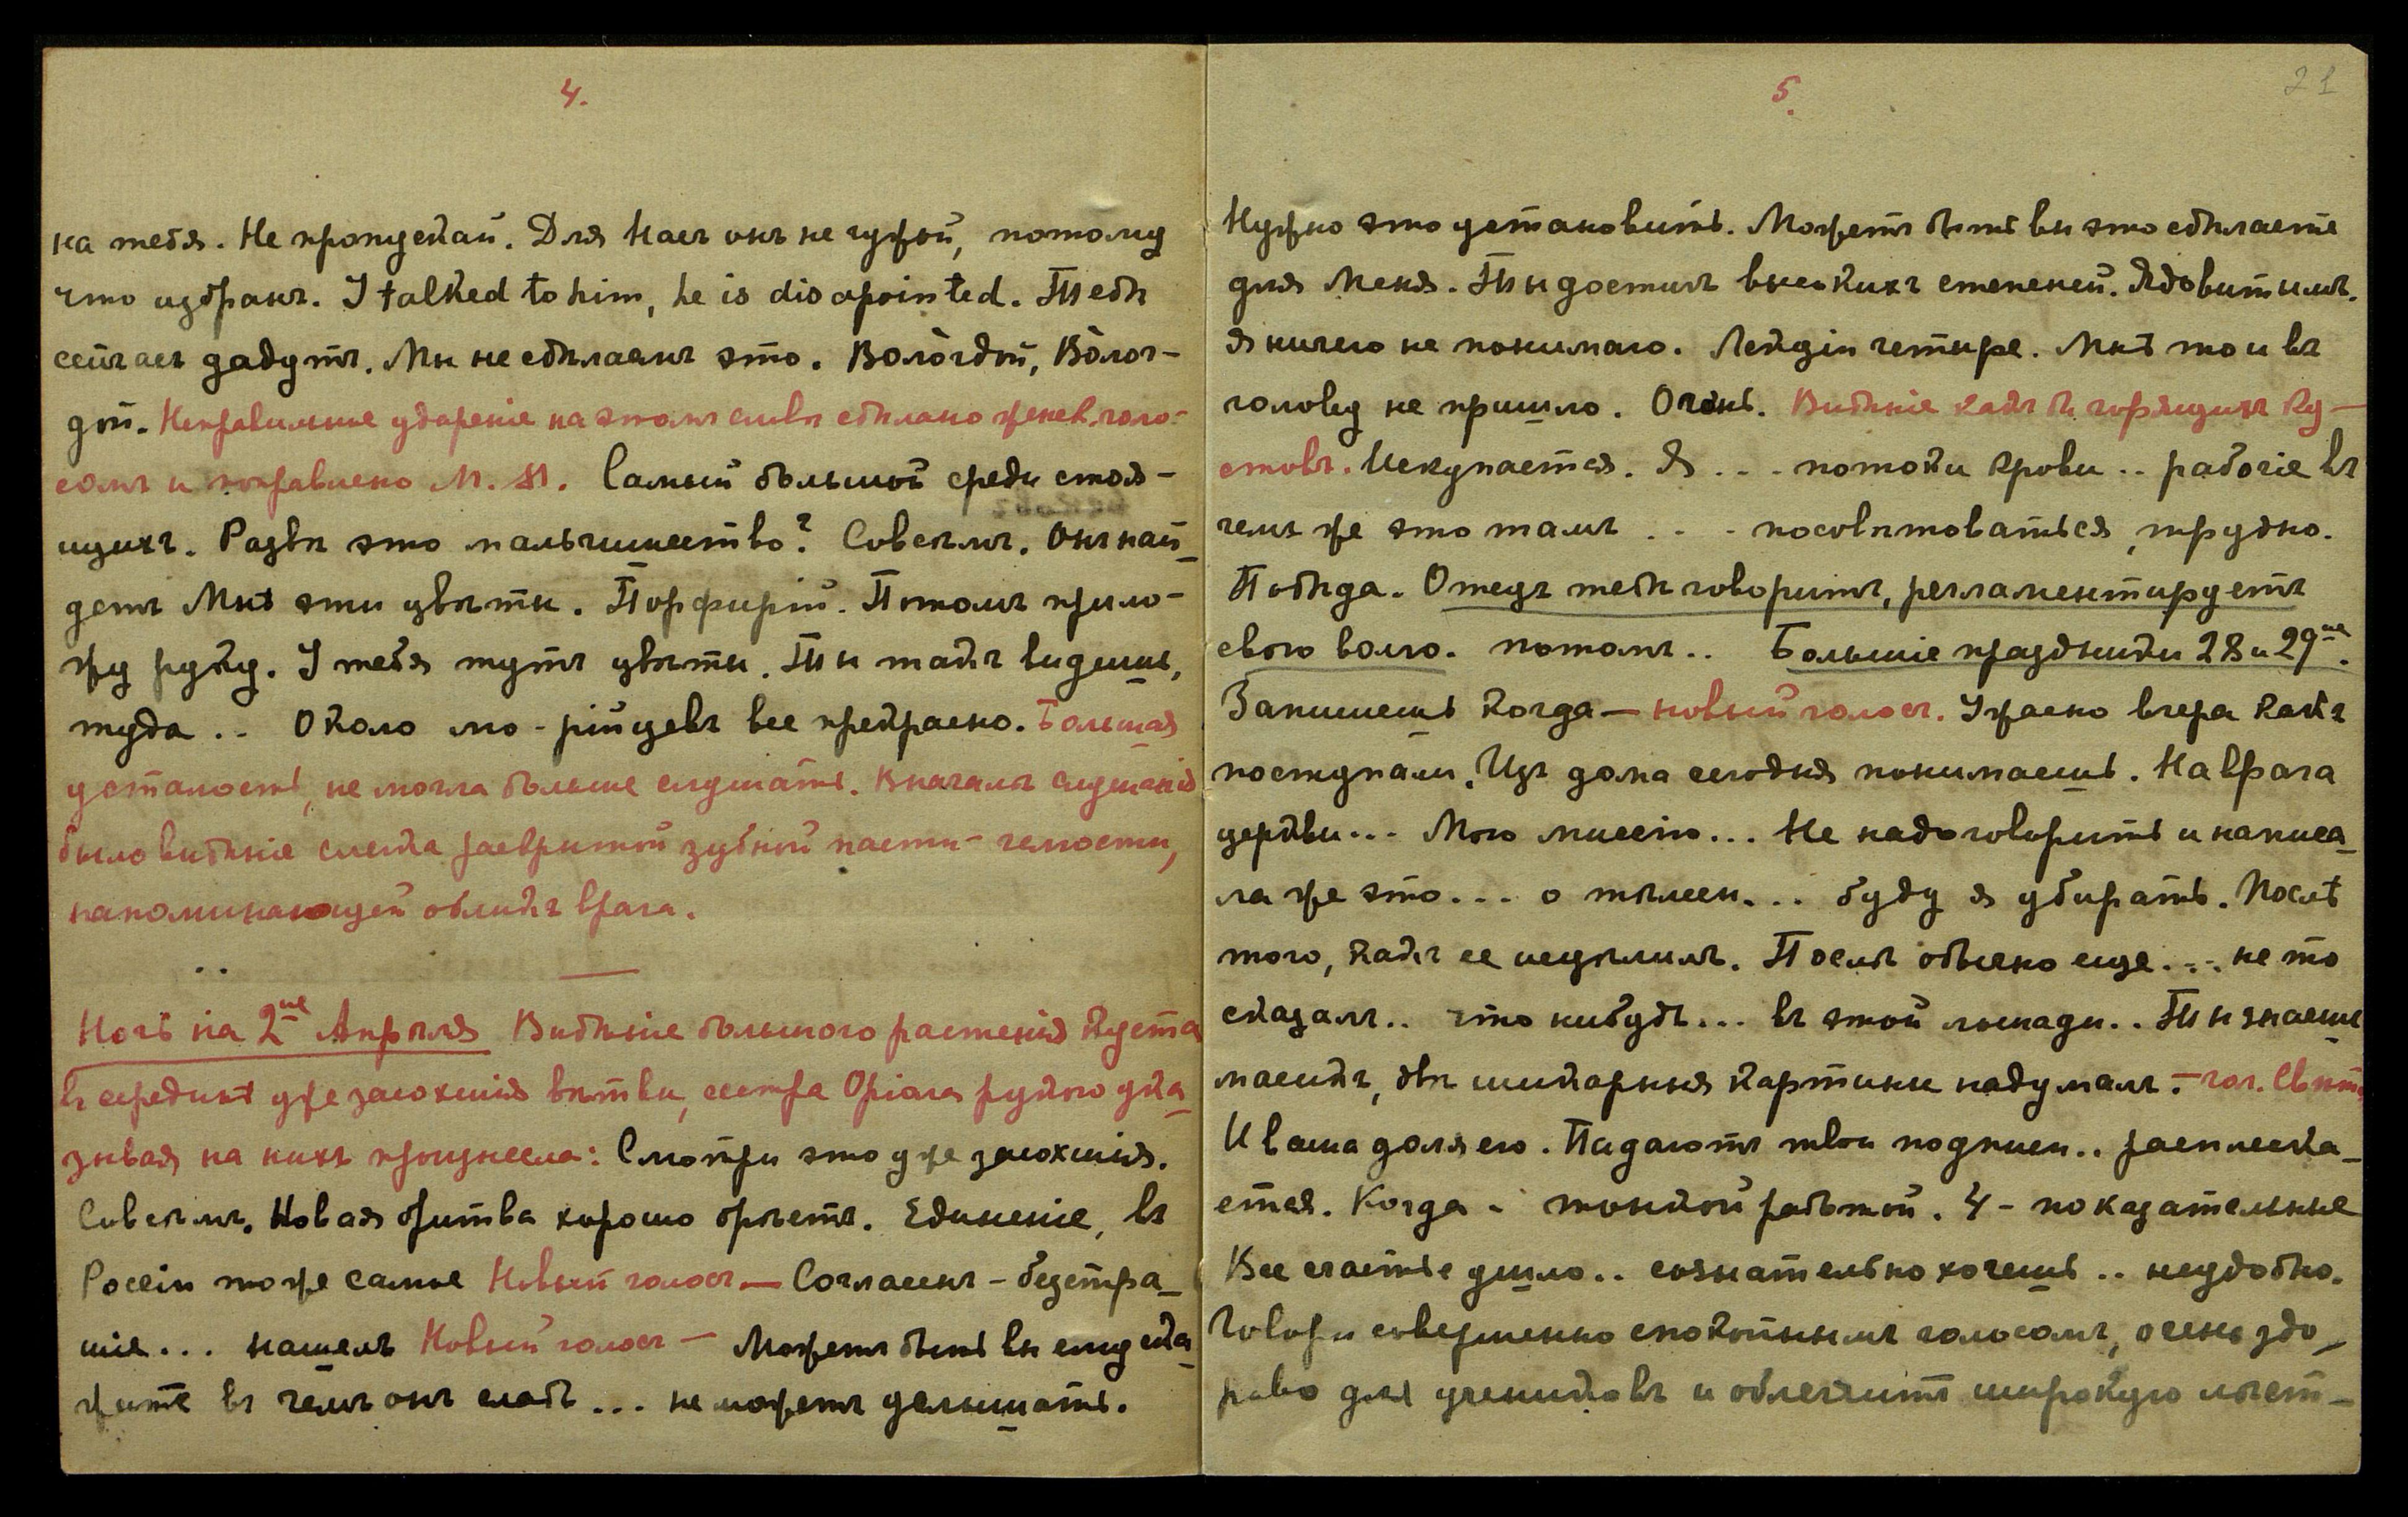 4.
на тебя. Не пропускай. Для Насъ онъ не чужой, потому
что избранъ. I talked to him, he is disapointed. Тебѣ
сейчасъ дадутъ. Мы не сдѣлаемъ это. Воло́гдой, Во́лог-
дой. Неправильное удареніе на этомъ словѣ сдѣлано женск. голо-
сомъ и поправлено М. М. Самый большой среди стоя-
щихъ. Развѣ это мальчишество? Совсѣмъ. Онъ най-
детъ Мнѣ эти цвѣты. Порфирій. Потомъ прило-
жу руку. У тебя тутъ цвѣты. Ты такъ видишь,
туда .. Около мо-рійцевъ все прекрасно. Большая
усталость, не могла больше слушать. Вначалѣ слушанія
было видѣніе слегка раскрытой зубной пасти - челюсти,
напоминающей обликъ врага.
Ночь на 2ое Апрѣля Видѣніе большого растенія куста
въ серединѣ уже засохшія вѣтви, сестра Оріола рукою ука-
зывая на нихъ произнесла: Смотри это уже засохшія.
Совсѣмъ. Новая бритва хорошо брѣетъ. Единеніе, въ
Россіи тоже самое Новый голосъ — Согласенъ - безстра-
шіе... нашелъ Новый голосъ — Можетъ быть вы ему ска-
жите въ чемъ онъ слабъ ... не можетъ услышать.
5.
21
Нужно это установить. Можетъ быть вы это сдѣлаете
для Меня. Ты достигъ высокихъ степеней. Ядовитымъ.
Я ничего не понимаю. Лейзіи четыре. Мнѣ то и въ
голову не пришло. Очень. Видѣніе какъ бы горящихъ ку-
стовъ. Искупается. Я ... потоки крови .. рабочіе въ
чемъ же это тамъ ... посовѣтоваться, трудно.
Побѣда. Отецъ тебѣ говоритъ, регламентируетъ
свою волю. потомъ .. Большіе праздники 28 и 29ое.
Запишешь когда — новый голосъ. Ужасно вчера какъ
поступали. Изъ дома сегодня понимаешь. На врага
церкви... Мою миссію... Не надо говорить и написа-
ла же это... о тѣлесн... буду я убирать. Послѣ
того, какъ ее исцѣлилъ. Послѣ обычно еще ... не то
сказалъ .. что нибудь ... въ этой лошади .. Ты знаешь
масикъ, двѣ шикарныя картины надумалъ. — гол. Свѣт.
И ваша доля его. Падаютъ твои подписи .. расплеска-
ется. Когда - тонкой работой. 4 - показательные
Все счастье ушло .. сознательно хочешь .. неудобно.
Говори совершенно спокойнымъ голосомъ, очень здо-
рово для учениковъ и облегчитъ широкую мѣст-